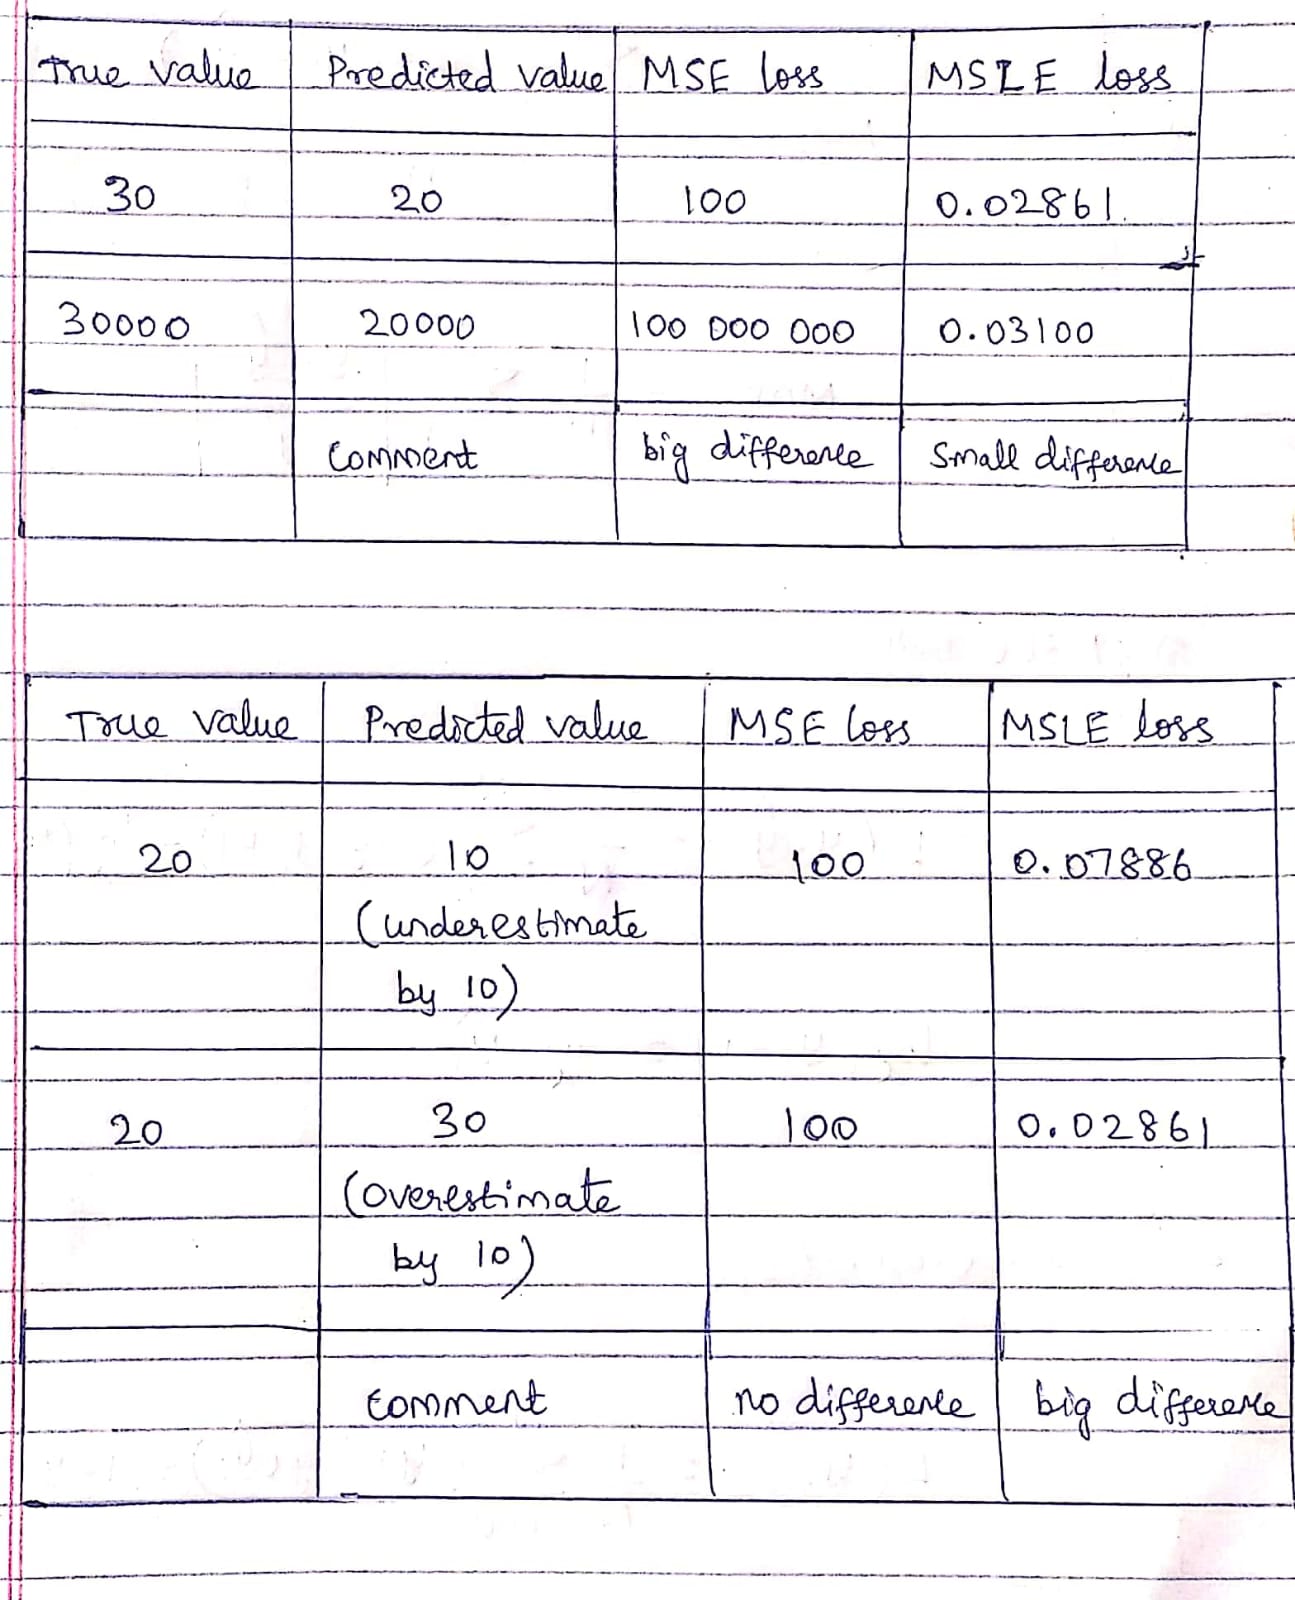 True value Predicted value MSE loss MSLE loss
30 20 100 0.02861
30000 20000 100 000 000 0.03100
comment big difference small difference
True value Predicted value MSE loss MSLE loss
20 10 100 0.07886
(underestimate
by 10)
20 30 100 0.02861
(overestimate
by 10)
comment no difference big difference